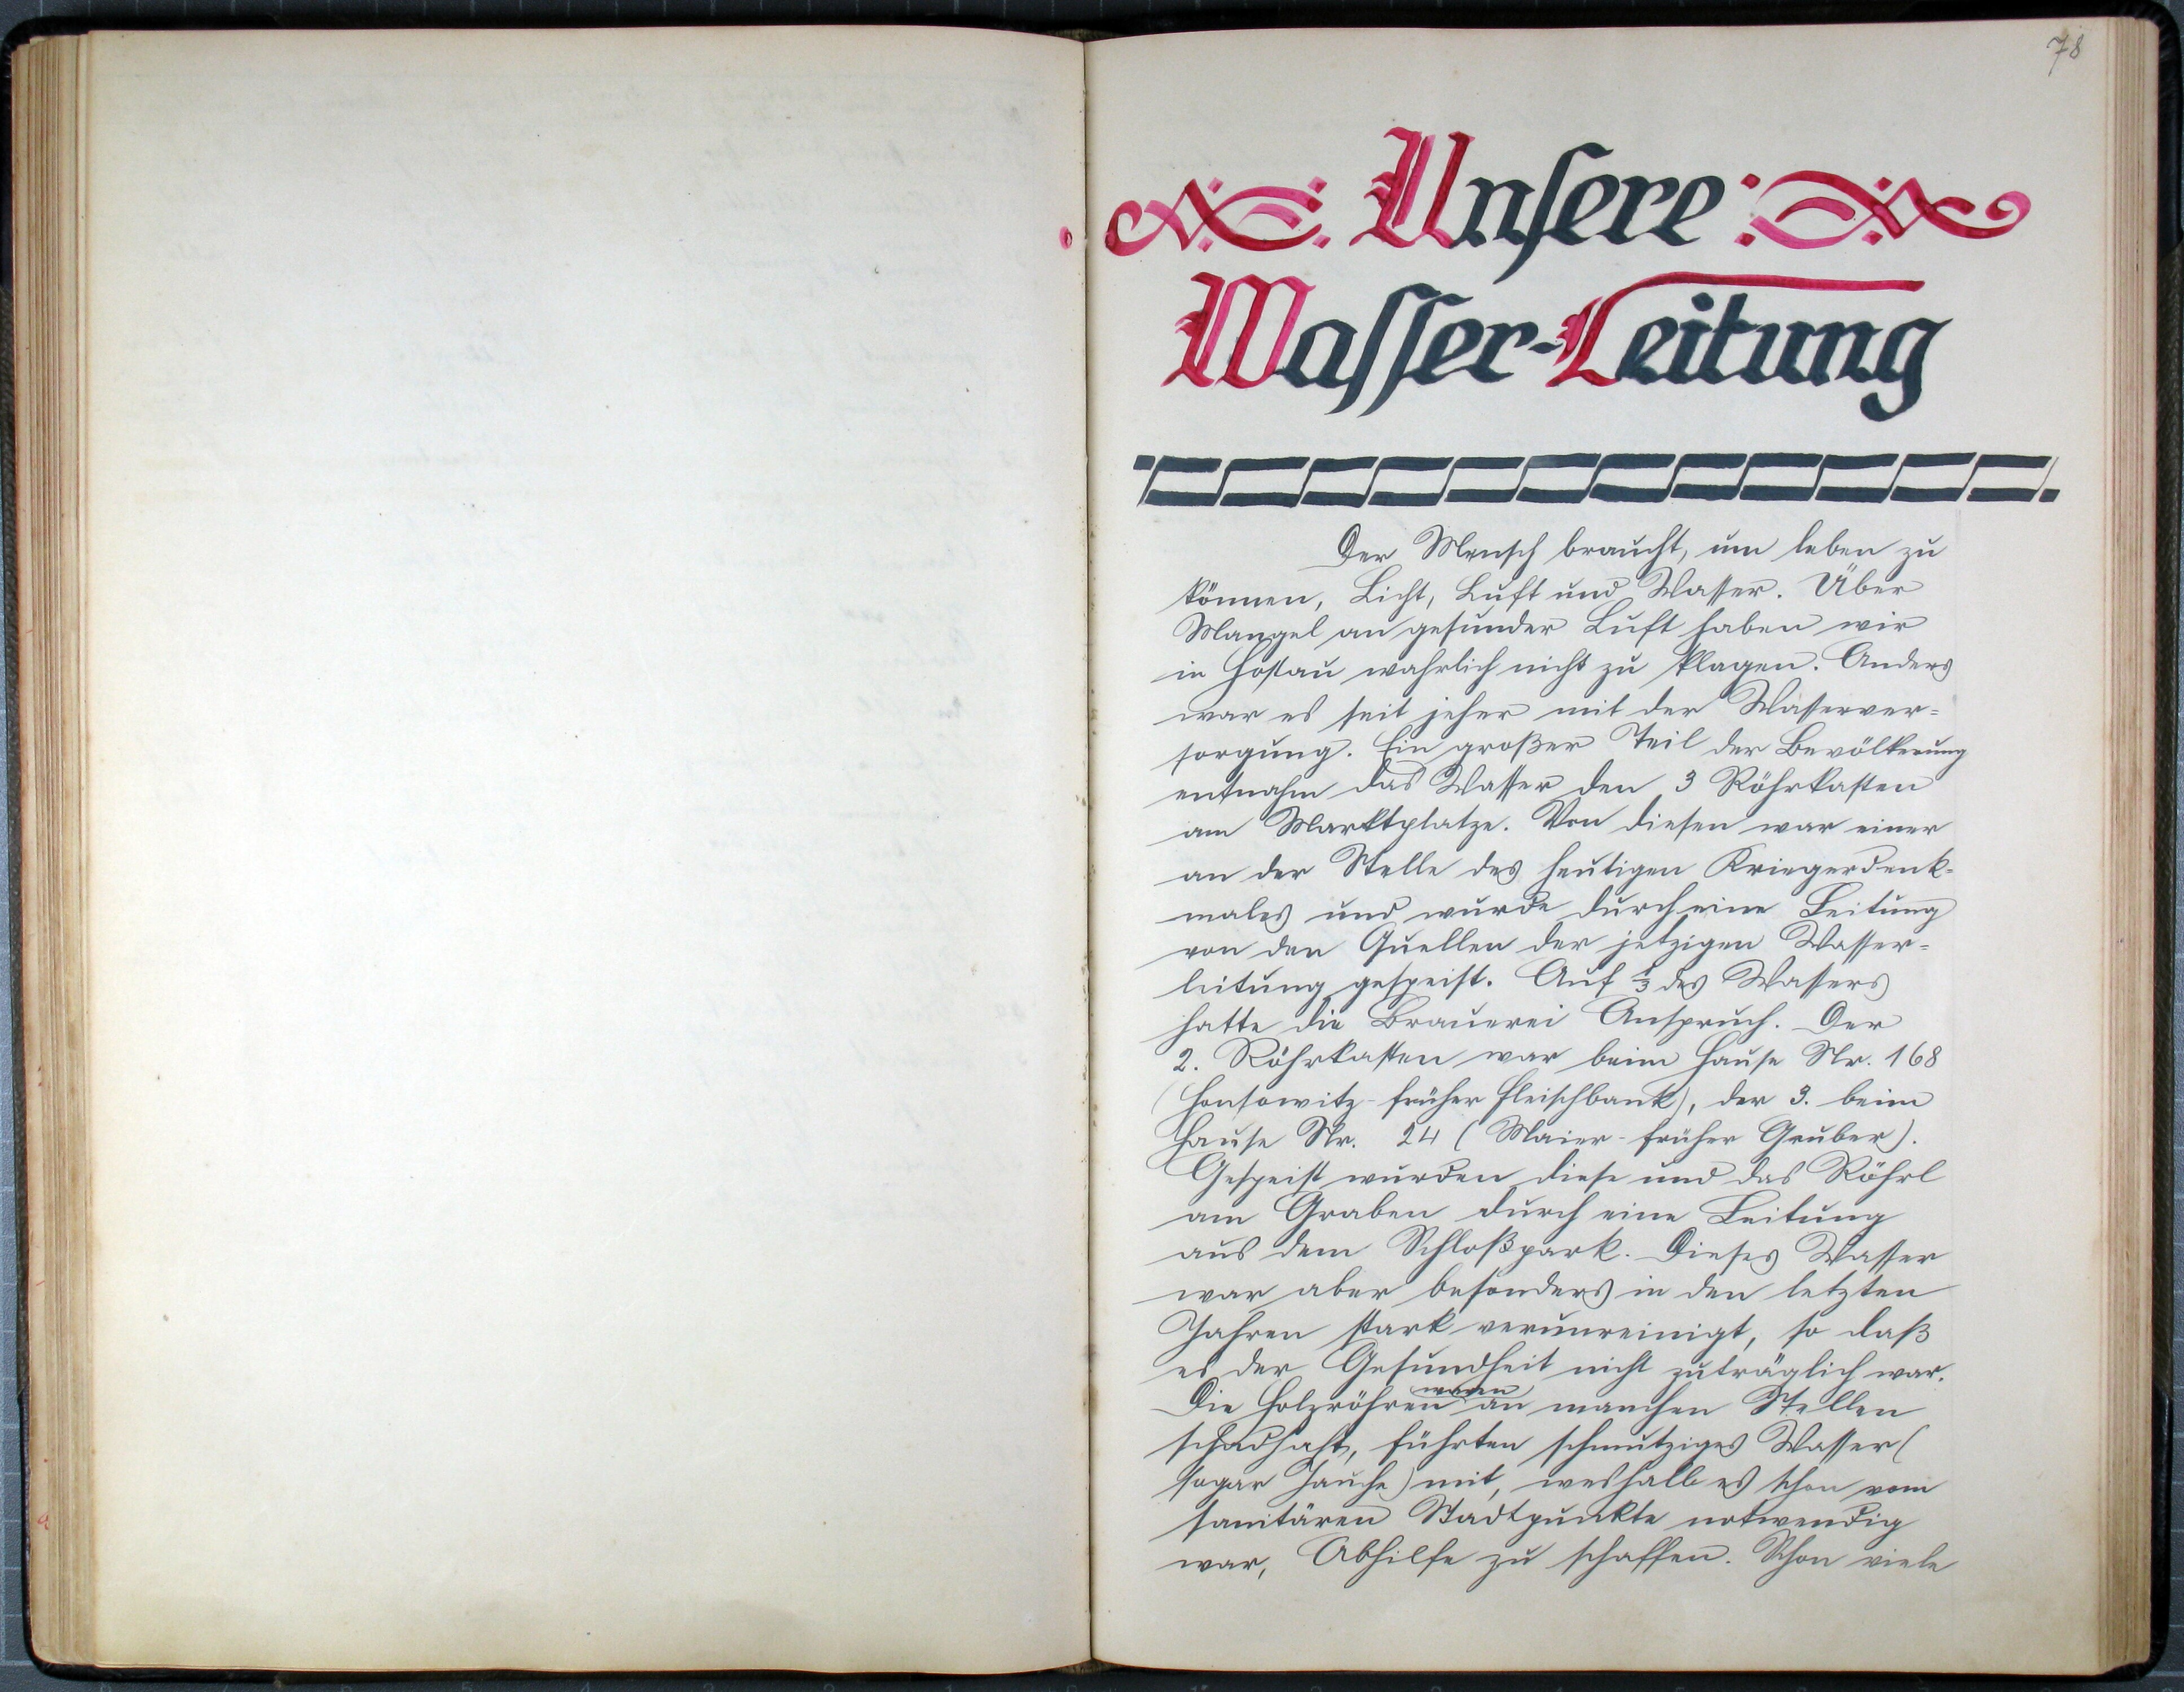 78
Unsere
Wasser-Leitung
Der Mensch braucht, um leben zu
können, Licht, Luft und Wasser. Über
Mangel an gesunder Luft haben wir
in Hostau wahrlich nicht zu klagen. Anders
war es seit jeher mit der Wasserver-
sorgung. Ein großer Teil der Bevölkerung
entnahm das Wasser den 3 Röhrkasten
am Marktplatze. Von diesen war einer
an der Stelle des heutigen Kriegerdenk-
males und wurde durch eine Leitung
von den Quellen der jetzigen Wasser-
leitung gespeist. Auf 1/3 des Wassers
hatte die Brauerei Anspruch. Der
2. Röhrkasten war beim Hause Nr. 168
(Honsowitz-früher Fleischbank), der 3. beim
Hause Nr. 24 (Maier-früher Gruber).
Gespeist wurden diese und das Röhrl
am Graben durch eine Leitung
aus dem Schloßpark. Dieses Wasser
war aber besonders in den letzten
Jahren stark verunreinigt, so daß
es der Gesundheit nicht zuträglich war.
Die Holzröhren waren an manchen Stellen
schadhaft, führten schmutziges Wasser (
sogar Jauche) mit, weshalb es schon vom
sanitären Stadtpunkte notwendig
war, Abhilfe zu schaffen. Schon viele